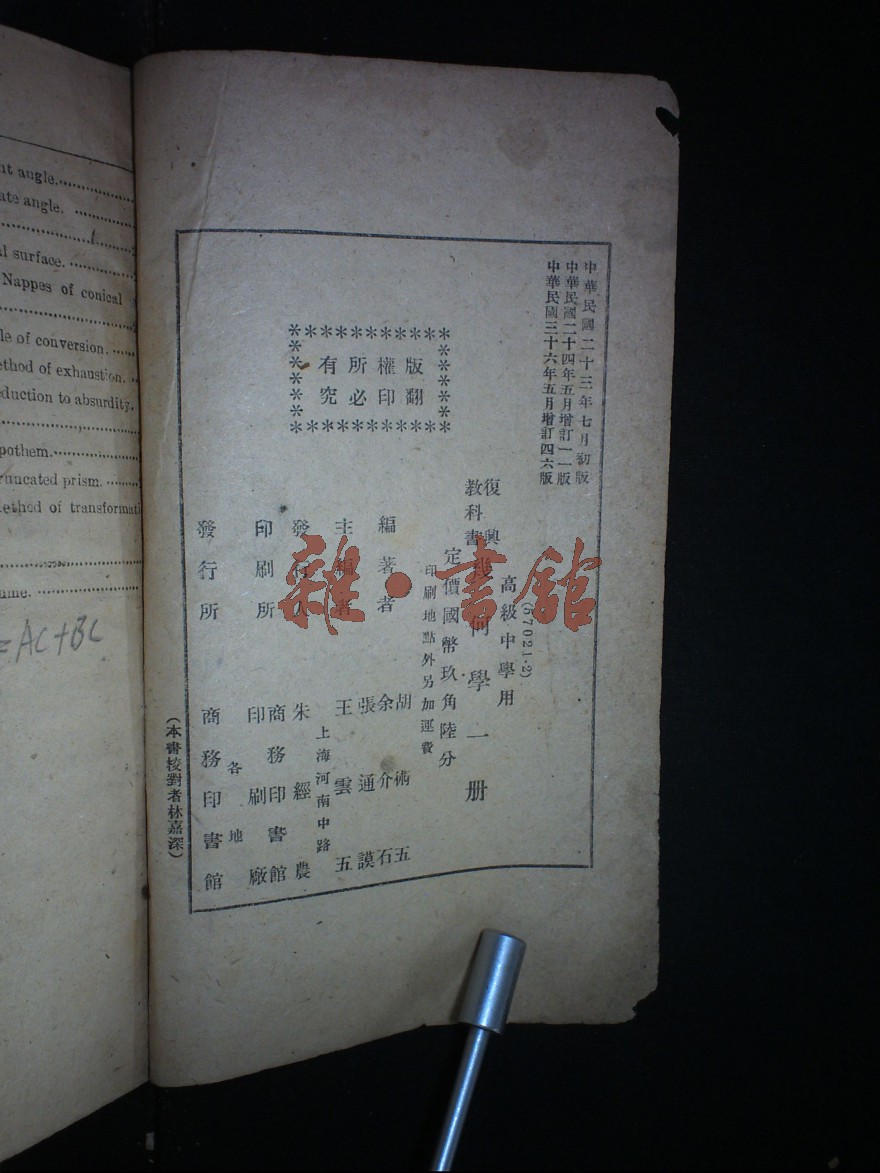 nt angle.
ate angle.
l surface.
Nappes of conical
le of conversion.
ethod of exhaustion.
eduction to absurdity.
pothem.
runcated prism.
ethod of transformati
ume.
=AC+BC
中華民國二十三年七月初版
中華民國二十四年五月增訂一一版
中華民國三十六年五月增訂四六版
版權所有
翻印必究
(57021·2)
高級中學用
復興教科書
幾何學一册
定價國幣玖角陸分
印刷地點外另加運費
編著者 胡術五 余介石 張通謨
主編者 王雲五
上海河南中路
發行人 朱經農
印刷所 商務印書館印刷廠
各地
發行所 商務印書館
(本書校對者林嘉深)
雜·書館